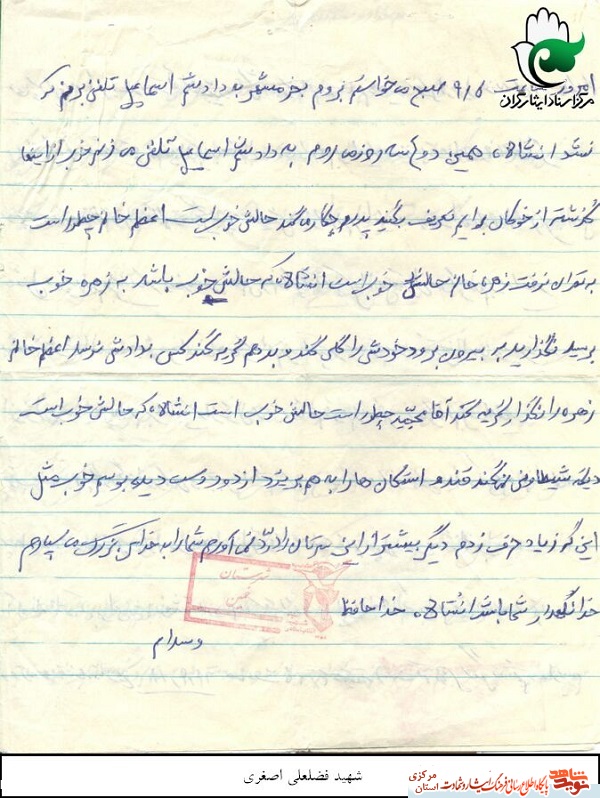 مرکز اسناد ایثارگران
امروز ساعت ۹/۵ صبح می خواستم بروم بخرمشهر به دادشم اسماعیل تلفنی بزنم که
نشد انشااله همین دو سه روزه می روم به دادشم اسماعیل تلفنی می زنم خوب از اینها
گذشته از خودتان برایم تعریف بگنید پدرم چکار می کند حالش خوب است اعظم خانم چطور است
به تهران نرفت زهره خانم حالش خوب است انشااله که حالش خوب باشد به زهره خوب
برسید نگذارید به بیرون برود خودش را گلی کند و بد هم گریه کند کس بدادش نرسد اعظم خانم
زهره را نگذار گریه کند آقا مجید چطور است حالش خوب است انشااله که حالش خوب است
دیگه شیطونی نمی کند قند و استکان ها را به هم بریزد از دور دست دیده بوسم خوب مثل
این که زیاد حرف زدم دیگر بیشتر از این سرتان را درد نمی آورم شما را به خدای بزرگ می سپارم
خدا نگهدار شما باشد انشااله خداحافظ
وسلام
شهید فضلعلی اصغری
نوید شاهد
پایگاه اطلاع رسانی فرهنگ ایثار و شهادت
استان مرکزی